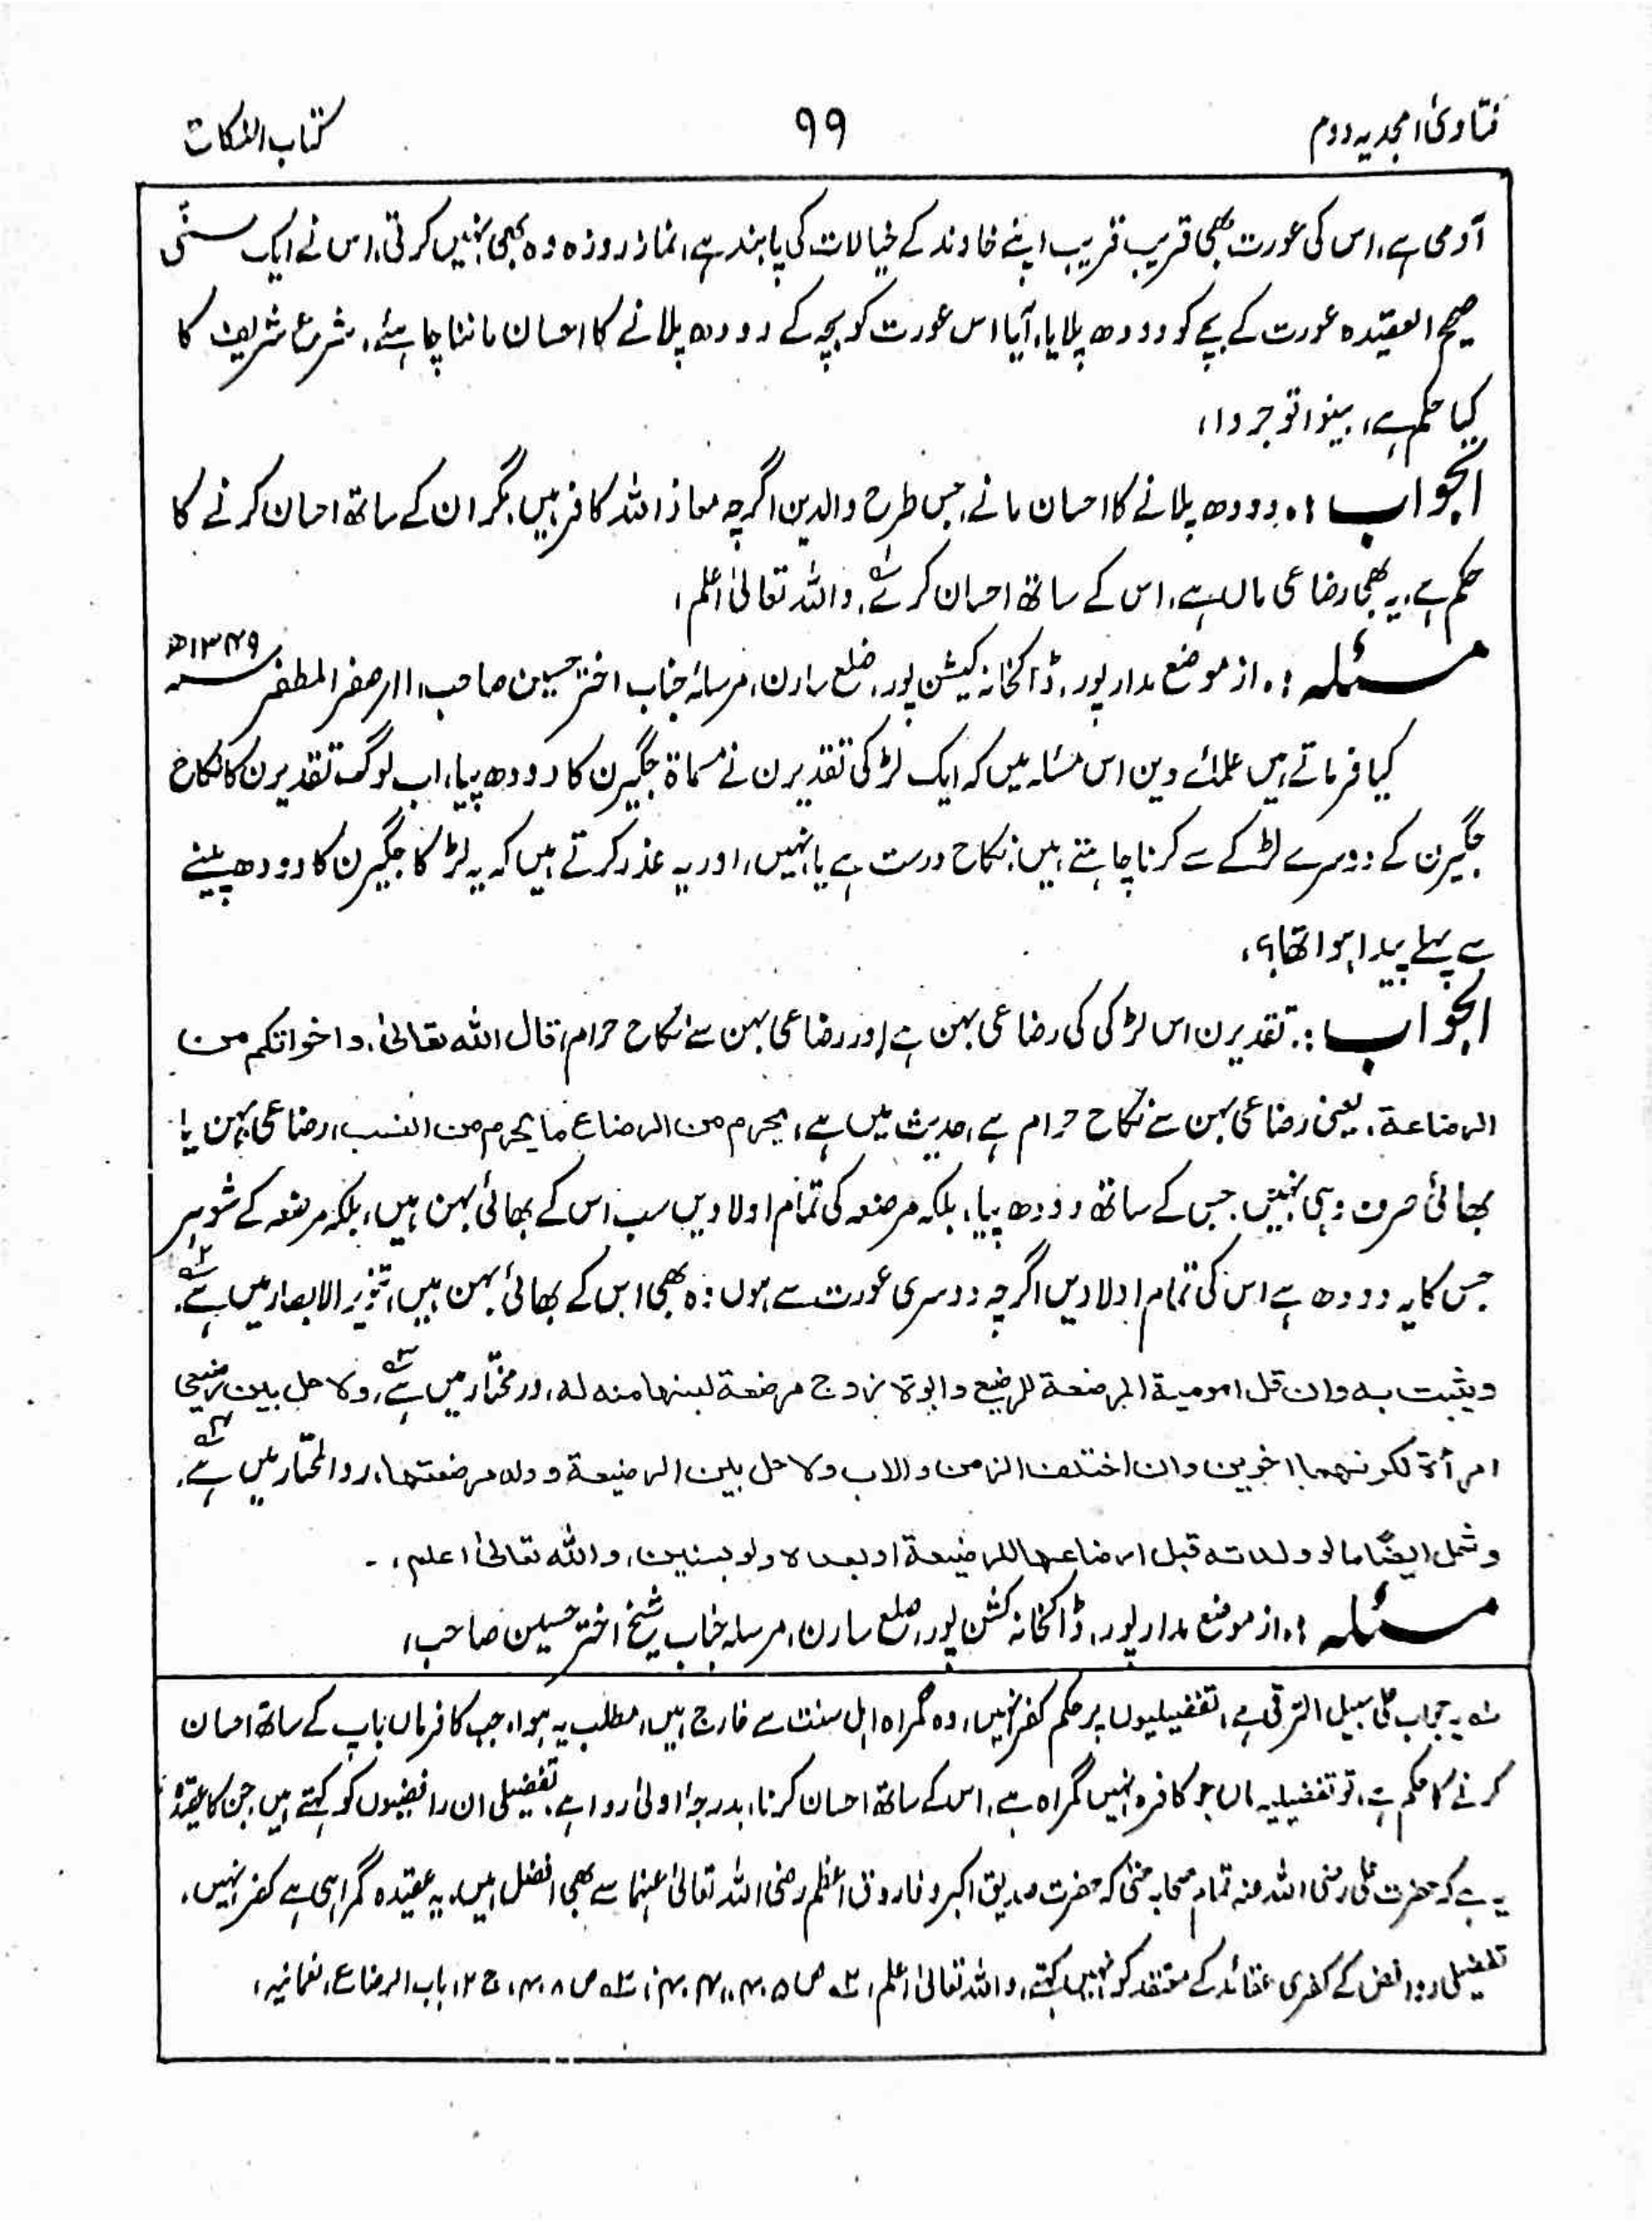 فتاویٰ امجدیہ دوم
۹۹
کتاب النکاح
آدمی ہے، اس کی عورت بھی قریب قریب اپنے خاوند کے خیالات کی پابند ہے، نماز روزہ وہ بھی نہیں کرتی، اس نے ایک سنّی
صحیح العقیدہ عورت کے بچے کو دودھ پلایا، آیا اس عورت کو بچہ کے دودھ پلانے کا احسان ماننا چاہئے، شرع شریف کا
کیا حکم ہے، بینوا توجروا،
الجواب :۔ دودھ پلانے کا احسان مانے، جس طرح والدین اگرچہ معاذ اللہ کافر ہیں، مگر ان کے ساتھ احسان کرنے کا
حکم ہے، یہ بھی رضاعی ماں ہے، اس کے ساتھ احسان کرے ۱؎، واللہ تعالیٰ اعلم،
مسئلہ :۔ از موضع مدار پور، ڈاکخانہ کیشن پور، ضلع سارن، مرسلہ جناب اختر حسین صاحب، ۱۱ صفر المظفر ۱۳۴۹ھ
کیا فرماتے ہیں علمائے دین اس مسئلہ میں کہ ایک لڑکی تقدیرن نے مسماۃ جگیرن کا دودھ پیا، اب لوگ تقدیرن کا نکاح
جگیرن کے دوسرے لڑکے سے کرنا چاہتے ہیں، نکاح درست ہے یا نہیں، اور یہ عذر کرتے ہیں کہ یہ لڑکا جگیرن کا دودھ پینے
سے پہلے پیدا ہوا تھا؟،
الجواب :۔ تقدیرن اس لڑکی کی رضاعی بہن ہے اور رضاعی بہن سے نکاح حرام، قال اللہ تعالیٰ، و اخواتکم من
الرضاعۃ، یعنی رضاعی بہن سے نکاح حرام ہے، حدیث میں ہے، یحرم من الرضاع ما یحرم من النسب، رضاعی بہن یا
بھائی صرف وہی نہیں جس کے ساتھ دودھ پیا، بلکہ مرضعہ کی تمام اولادیں سب اس کے بھائی بہن ہیں، بلکہ مرضعہ کے شوہر
جس کا یہ دودھ ہے اس کی تمام اولادیں اگرچہ دوسری عورت سے ہوں وہ بھی اس کے بھائی بہن ہیں، تنویر الابصار میں ہے ۲؎،
ویثبت بہ وان قل امومیۃ المرضعۃ للرضیع وابوۃ زوج مرضعۃ لبنہا منہ لہ، درمختار میں ہے ۳؎، ولا حل بین رضیعی
امرأۃ لکونہما اخوین وان اختلف الزمن والاب ولا حل بین الرضیعۃ وولد مرضعتہا، ردالمحتار میں ہے ۴؎،
وشمل ایضًا ما لو ولدتہ قبل ارضاعہا للرضیعۃ او بعدہ ولو بسنین، واللہ تعالیٰ اعلم، ۔
مسئلہ :۔ از موضع مدار پور، ڈاکخانہ کشن پور، ضلع سارن، مرسلہ جناب شیخ اختر حسین صاحب،
۱؎ یہ جواب علی سبیل الترقی ہے، تفضیلیوں پر حکم کفر نہیں، وہ گمراہ اہل سنت سے خارج ہیں، مطلب یہ ہوا، جب کافر ماں باپ کے ساتھ احسان
کرنے کا حکم ہے، تو تفضیلیہ ماں جو کافرہ نہیں گمراہ ہے، اس کے ساتھ احسان کرنا، بدرجۂ اولیٰ روا ہے، تفضیلی ان رافضیوں کو کہتے ہیں جن کا عقیدہ
یہ ہے کہ حضرت علی رضی اللہ عنہ تمام صحابہ حتیٰ کہ حضرت صدیق اکبر و فاروق اعظم رضی اللہ تعالیٰ عنہما سے بھی افضل ہیں، یہ عقیدہ گمراہی ہے کفر نہیں،
تفضیلی روافض کے کفری عقائد کے معتقد کو نہیں کہتے، واللہ تعالیٰ اعلم، ۲؎ ص ۴۰۵، ۴۰۸، ج ۲، باب الرضاع، نعمانیہ،